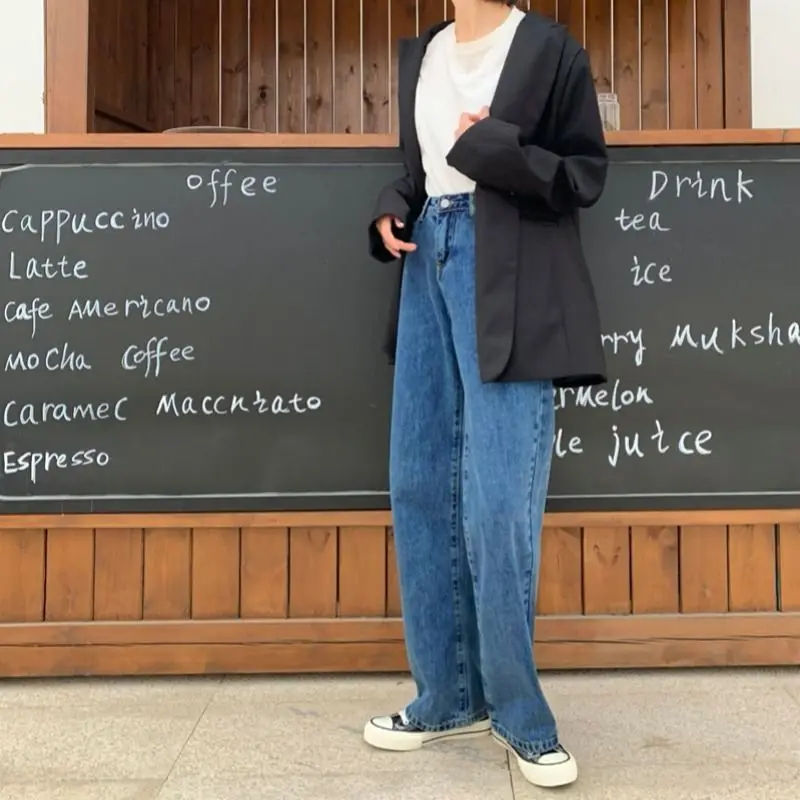 offee
Cappuccino
Latte
Cafe Americano
Mocha Coffee
Caramec Maccnrato
Espresso
Drink
tea
ice
rry Muksha
ermelon
le juice